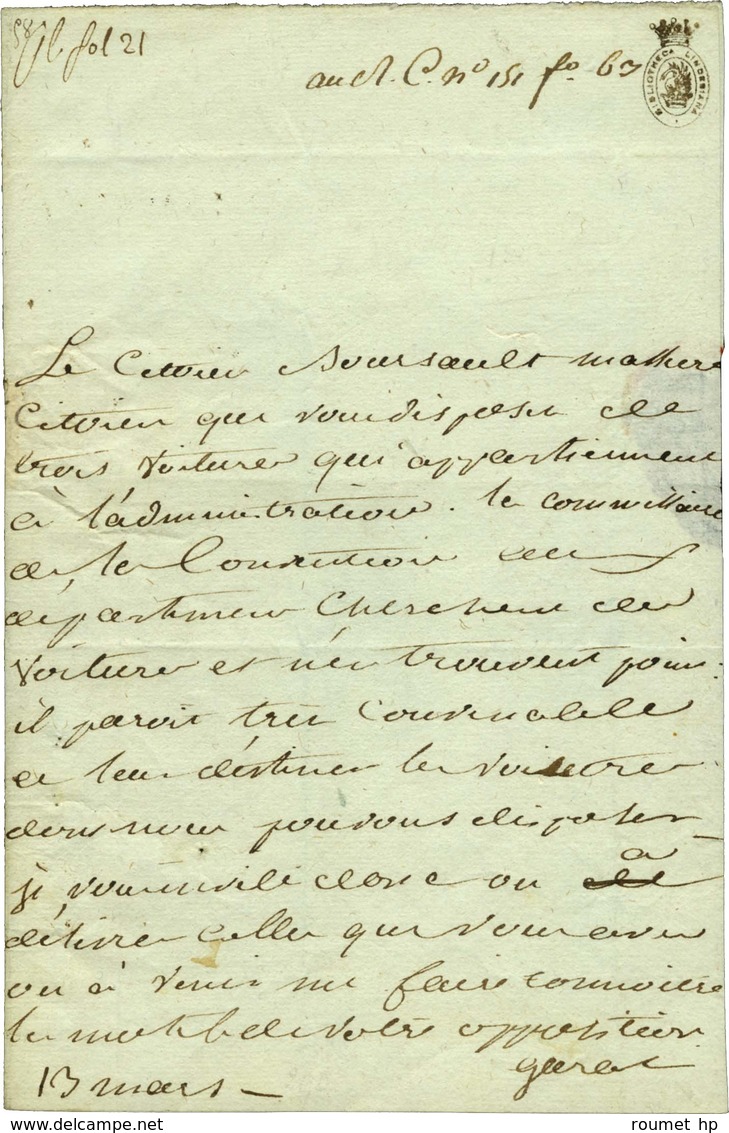 fol 21
C. n° 151 f° 63
BIBLIOTHECA LINDESIANA
Le Citoien Boursault m'assure
Citoien que vous disposes de
trois voitures qui appartiennent
à l'administration. les commissaires
de la Convention des
départemens cherchent des
voitures et n'en trouvent point.
il paroit très convenable
de leur déstiner les voitures
dont nous pouvons disposer
je vous invite donc ou à
délivrer celles que vous aves
ou à venir me faire connoitre
les motifs de votre opposition
garat
13 mars
roumet hp